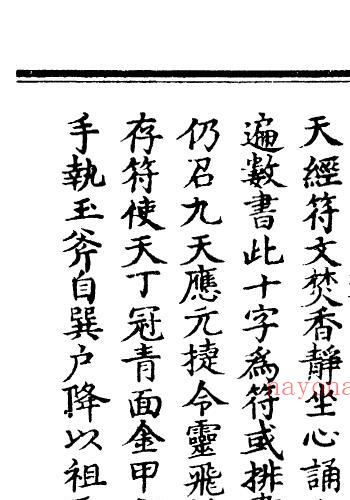 天經符文焚香靜坐心誦
遍數書此十字為符或排
仍召九天應元捷令靈飛
存符使天丁冠青面金甲
手執玉斧自巽户降以祖
nayona